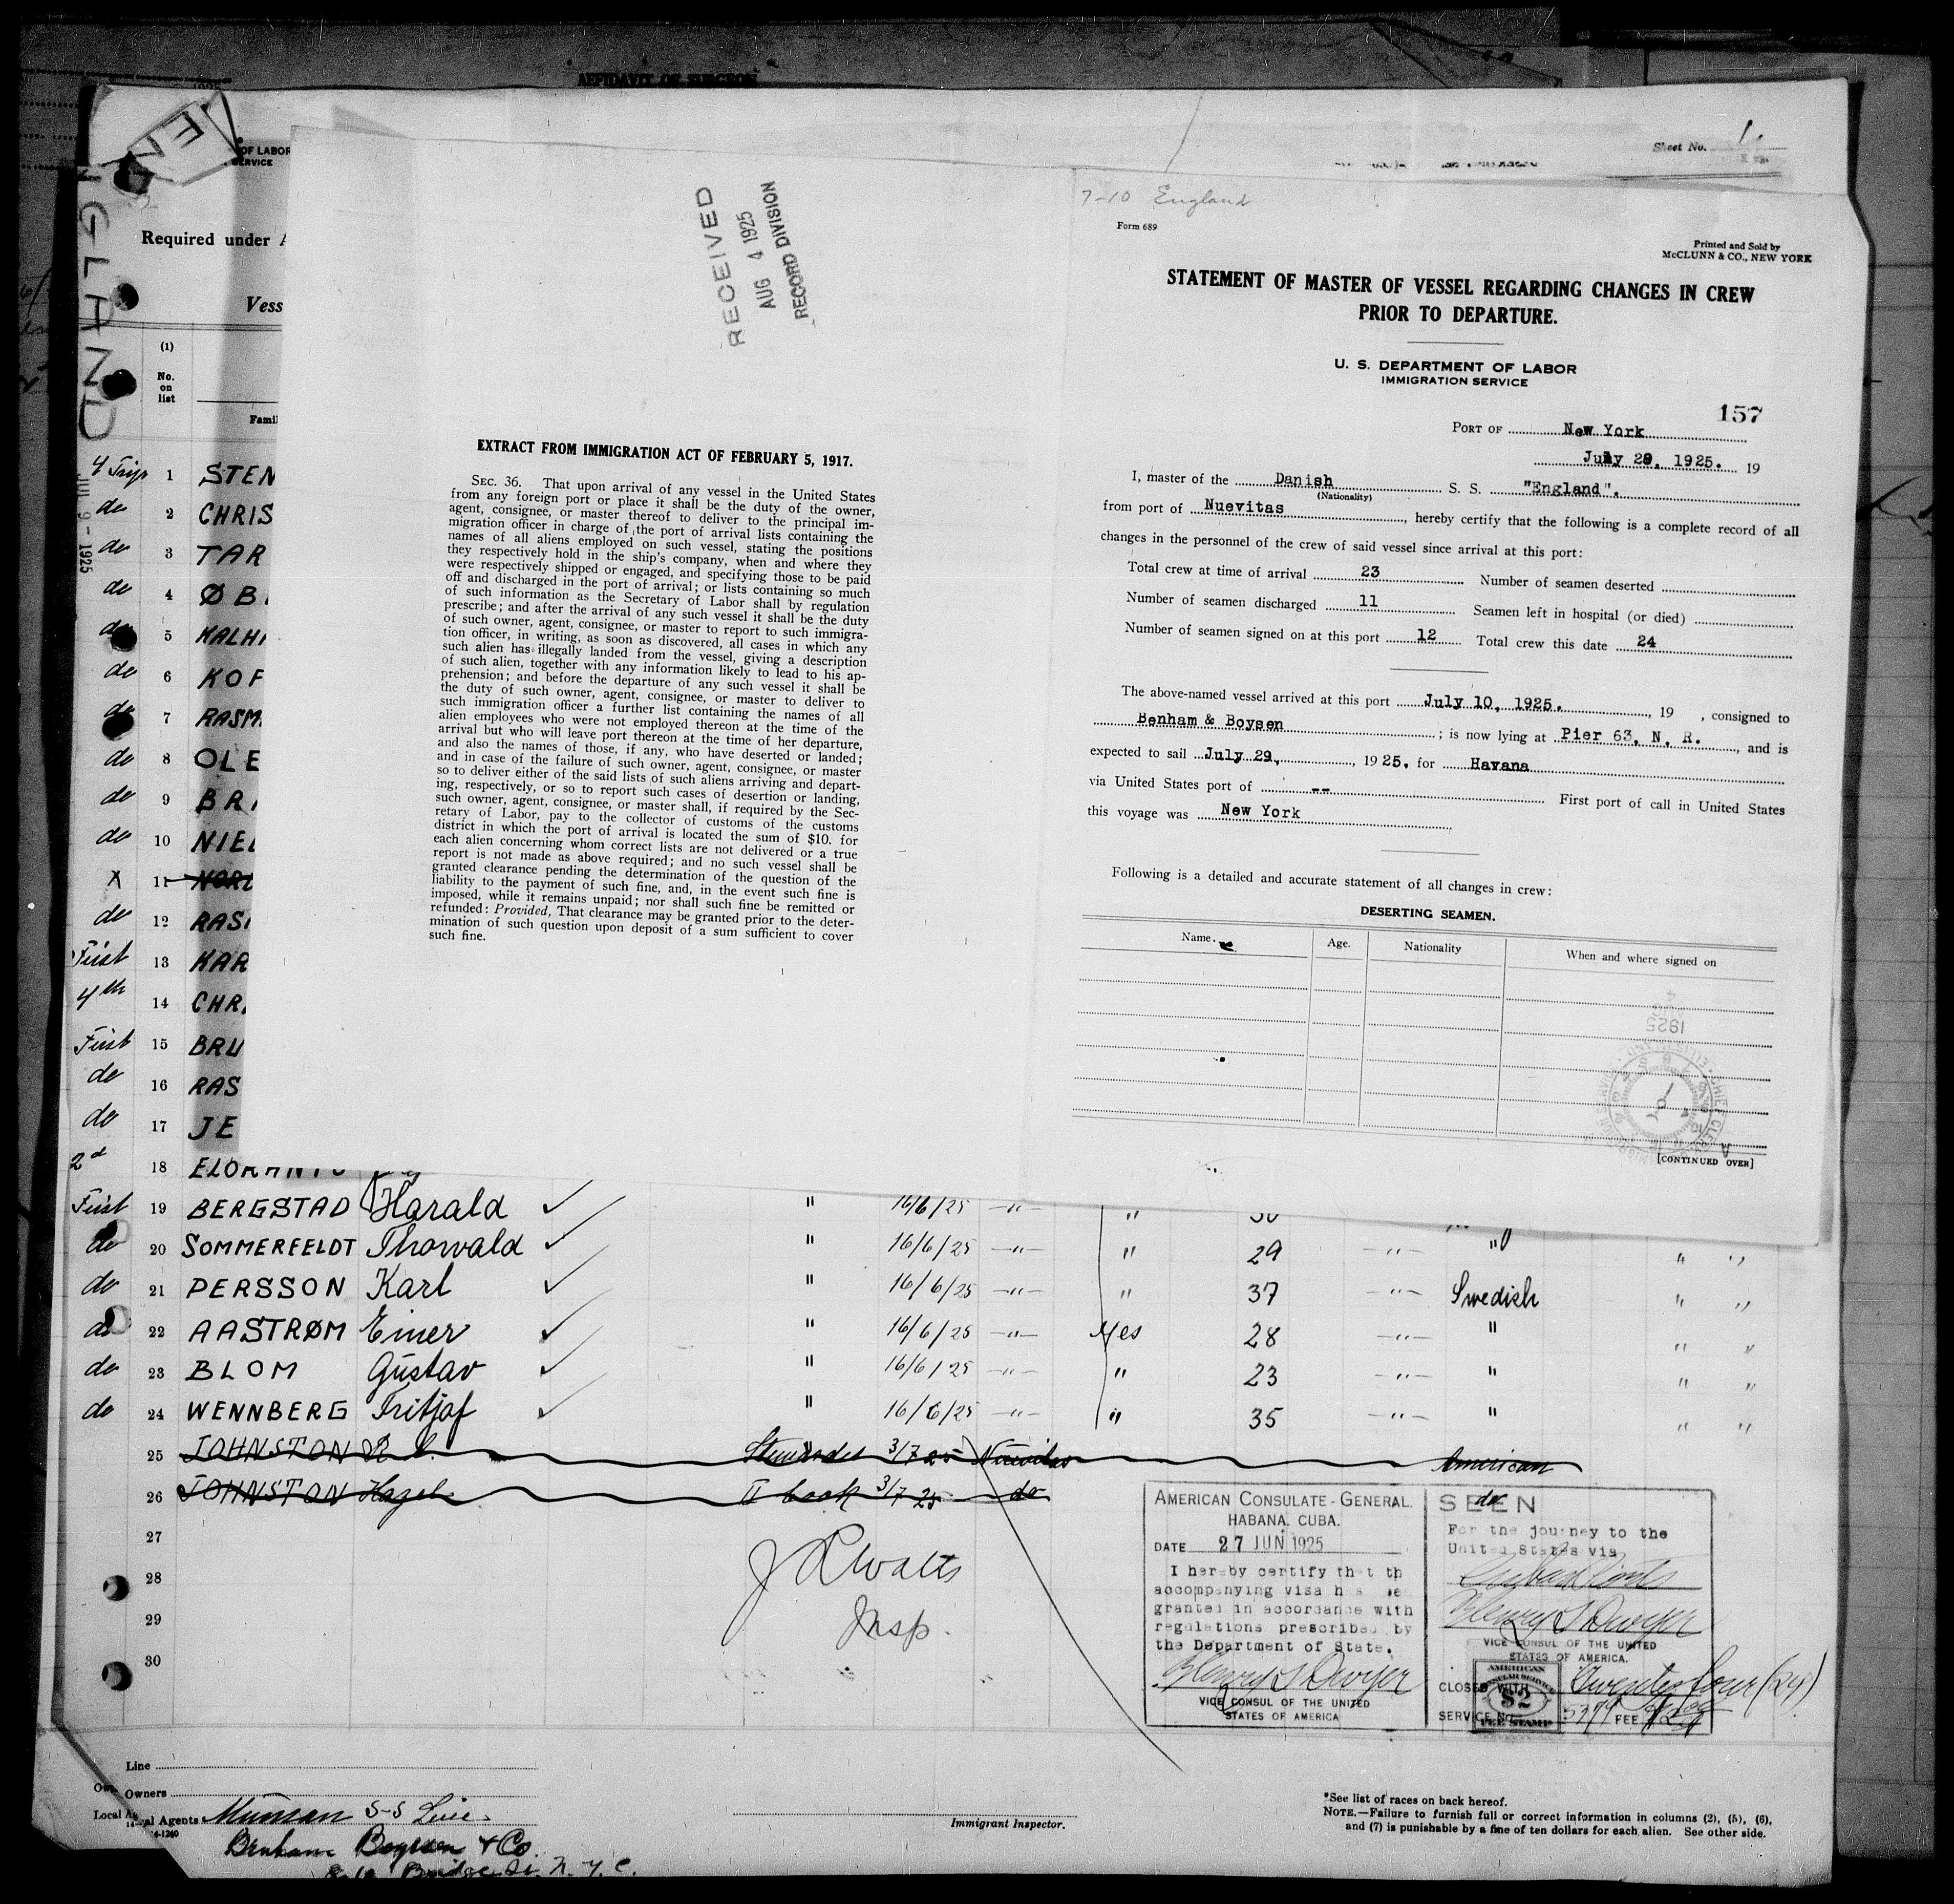 AFFIDAVIT OF SURGEON
EN
GLAND
OF LABOR
SERVICE
Sheet No. 1
Required under A
Vess
(1)
No.
on
list
Famil
JUL 9 - 1925
4 Trip 1 STEN
do 2 CHRIS
do 3 TAR
do 4 ØB
do 5 MALH
do 6 KOF
do 7 RASM
do 8 OLE
do 9 BR
do 10 NIEL
X 11 NORD
do 12 RAS
First 13 HAR
4th 14 CHR
First 15 BRU
do 16 RAS
do 17 JE
2d 18
First 19 BERGSTAD Harald ✓ " 16/6/25 -"- " 30
do 20 SOMMERFELDT Thorvald ✓ " 16/6/25 -"- " 29 -"- " " "
do 21 PERSSON Karl ✓ " 16/6/25 -"- " 37 -"- Swedish " "
do 22 AASTRØM Einer ✓ " 16/6/25 -"- Yes 28 -"- " " "
do 23 BLOM Gustav ✓ " 16/6/25 -"- " 23 -"- " " "
do 24 WENNBERG Fritjof ✓ " 16/6/25 -"- " 35 -"- " " "
25 JOHNSTON R. C. Stewardes 3/7 25 Nuevitas American
26 JOHNSTON Hazel II Cook 3/7 25 do do
27
28
29
30
J L Watts
Insp.
RECEIVED
AUG 4 1925
RECORD DIVISION
EXTRACT FROM IMMIGRATION ACT OF FEBRUARY 5, 1917.
SEC. 36. That upon arrival of any vessel in the United States
from any foreign port or place it shall be the duty of the owner,
agent, consignee, or master thereof to deliver to the principal im-
migration officer in charge of the port of arrival lists containing the
names of all aliens employed on such vessel, stating the positions
they respectively hold in the ship's company, when and where they
were respectively shipped or engaged, and specifying those to be paid
off and discharged in the port of arrival; or lists containing so much
of such information as the Secretary of Labor shall by regulation
prescribe; and after the arrival of any such vessel it shall be the duty
of such owner, agent, consignee, or master to report to such immigra-
tion officer, in writing, as soon as discovered, all cases in which any
such alien has illegally landed from the vessel, giving a description
of such alien, together with any information likely to lead to his ap-
prehension; and before the departure of any such vessel it shall be
the duty of such owner, agent, consignee, or master to deliver to
such immigration officer a further list containing the names of all
alien employees who were not employed thereon at the time of the
arrival but who will leave port thereon at the time of her departure,
and also the names of those, if any, who have deserted or landed;
and in case of the failure of such owner, agent, consignee, or master
so to deliver either of the said lists of such aliens arriving and depart-
ing, respectively, or so to report such cases of desertion or landing,
such owner, agent, consignee, or master shall, if required by the Sec-
retary of Labor, pay to the collector of customs of the customs
district in which the port of arrival is located the sum of $10. for
each alien concerning whom correct lists are not delivered or a true
report is not made as above required; and no such vessel shall be
granted clearance pending the determination of the question of the
liability to the payment of such fine, and, in the event such fine is
imposed, while it remains unpaid; nor shall such fine be remitted or
refunded: Provided, That clearance may be granted prior to the deter-
mination of such question upon deposit of a sum sufficient to cover
such fine.
7-10 England
Form 689
Printed and Sold by
McCLUNN & CO., NEW YORK
STATEMENT OF MASTER OF VESSEL REGARDING CHANGES IN CREW
PRIOR TO DEPARTURE.
U. S. DEPARTMENT OF LABOR
IMMIGRATION SERVICE
157
PORT OF New York
July 29, 1925. 19
I, master of the Danish S. S. "England".
(Nationality)
from port of Nuevitas, hereby certify that the following is a complete record of all
changes in the personnel of the crew of said vessel since arrival at this port:
Total crew at time of arrival 23 Number of seamen deserted
Number of seamen discharged 11 Seamen left in hospital (or died)
Number of seamen signed on at this port 12 Total crew this date 24
The above-named vessel arrived at this port July 10, 1925., 19 , consigned to
Benham & Boysen; is now lying at Pier 63, N. R., and is
expected to sail July 29,, 1925. for Havana
via United States port of -- First port of call in United States
this voyage was New York
Following is a detailed and accurate statement of all changes in crew:
DESERTING SEAMEN.
Name. Age. Nationality When and where signed on
1925
[CONTINUED OVER]
AMERICAN CONSULATE-GENERAL.
HABANA, CUBA.
DATE 27 JUN 1925
I hereby certify that th
accompanying visa has been
granted in accordance with
regulations prescribed by
the Department of State.
Henry S Dwyer
VICE CONSUL OF THE UNITED
STATES OF AMERICA
SEEN
For the journey to the
United States via
Cuban Ports
Henry S Dwyer
VICE CONSUL OF THE UNITED
STATES OF AMERICA.
CLOSED WITH Twenty four (24)
SERVICE No. 5379 FEE
AMERICAN
CONSULAR SERVICE
$2
FEE STAMP
Line
Owners
Local Agents Munson S-S Line.
Benham Boysen & Co.
8-10 Bridge St. N. Y. C.
14-1240
Immigrant Inspector.
*See list of races on back hereof.
NOTE.—Failure to furnish full or correct information in columns (2), (5), (6),
and (7) is punishable by a fine of ten dollars for each alien. See other side.